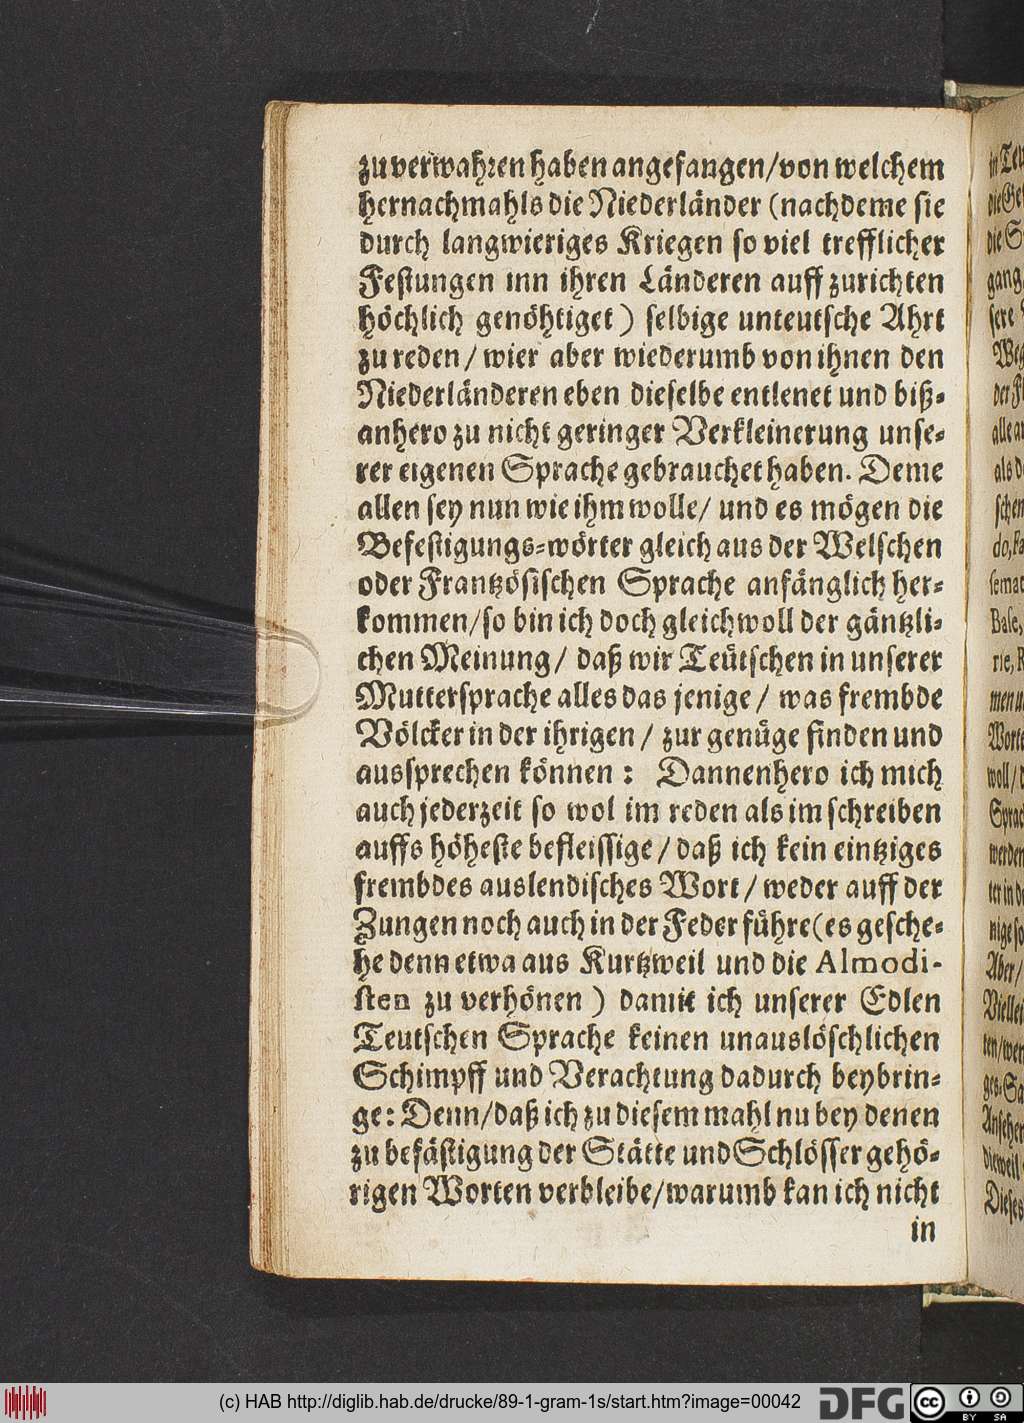 zu verwahren haben angefangen/von welchem
hernachmahls die Niederländer (nachdeme sie
durch langwieriges Kriegen so viel trefflicher
Festungen inn ihren Länderen auff zurichten
höchlich genöhtiget) selbige unteutsche Ahrt
zu reden/ wier aber wiederumb von ihnen den
Niederländeren eben dieselbe entlenet und biß-
anhero zu nicht geringer Verkleinerung unse-
rer eigenen Sprache gebrauchet haben. Deme
allen sey nun wie ihm wolle/ und es mögen die
Befestigungs-wörter gleich aus der Welschen
oder Frantzösischen Sprache anfänglich her-
kommen/so bin ich doch gleichwoll der gäntzli-
chen Meinung/ daß wir Teütschen in unserer
Muttersprache alles das jenige/ was frembde
Völcker in der ihrigen/ zur genüge finden und
aussprechen können: Dannenhero ich mich
auch jederzeit so wol im reden als im schreiben
auffs höheste befleissige/daß ich kein eintziges
frembdes auslendisches Wort/ weder auff der
Zungen noch auch in der Feder führe(es gesche-
he denn etwa aus Kurtzweil und die Almodi-
sten zu verhönen) damit ich unserer Edlen
Teutschen Sprache keinen unauslöschlichen
Schimpff und Verachtung dadurch beybrin-
ge: Denn/daß ich zu diesem mahl nu bey denen
zu befästigung der Stätte und Schlösser gehö-
rigen Worten verbleibe/warumb kan ich nicht
in
(c) HAB http://diglib.hab.de/drucke/89-1-gram-1s/start.htm?image=00042
DFG
cc BY SA